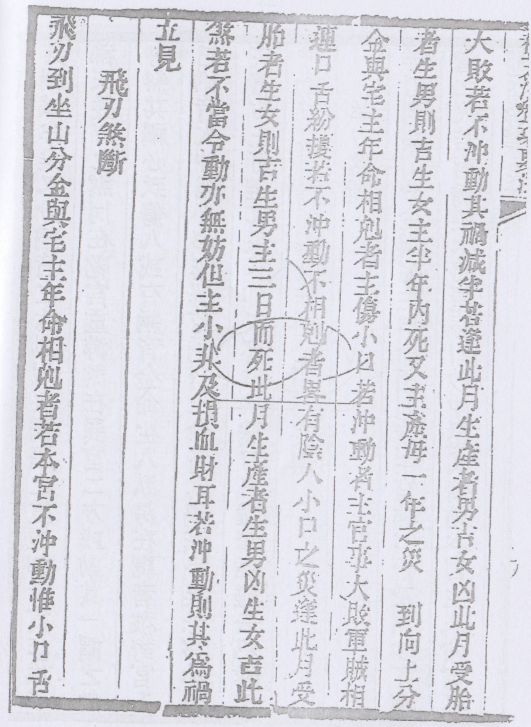 大敗若不沖動其禍減半若逢此月生產者男吉女凶此月受胎
者生男則吉生女主半年內死又主產母一年之災 到向上分
金與宅主年命相尅者主傷小口若沖動者主官事大敗軍賊相
連口舌紛擾若不沖動不相尅者畧有陰人小口之災逢此月受
胎者生女則吉生男主三日而死此月生產者生男凶生女吉此
煞若不當令動亦無妨但主小非及損血財耳若沖動則其為禍
立見
飛刃煞斷
飛刃到坐山分金與宅主年命相尅者若本宮不沖動惟小口舌